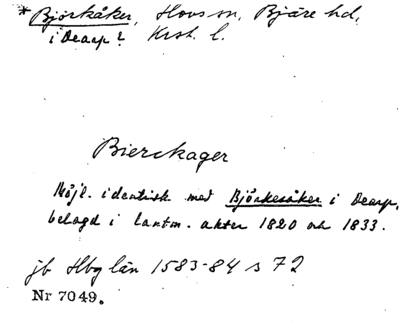 *Björkåker, Hovs sn, Bjäre hd,
i Dearp? Krst. l.
Bierckager
Möjl. identisk med Björkesåker i Dearp,
belagd i lantm. akter 1820 och 1833.
jb Hbg län 1583-84 s 72
Nr 7049.